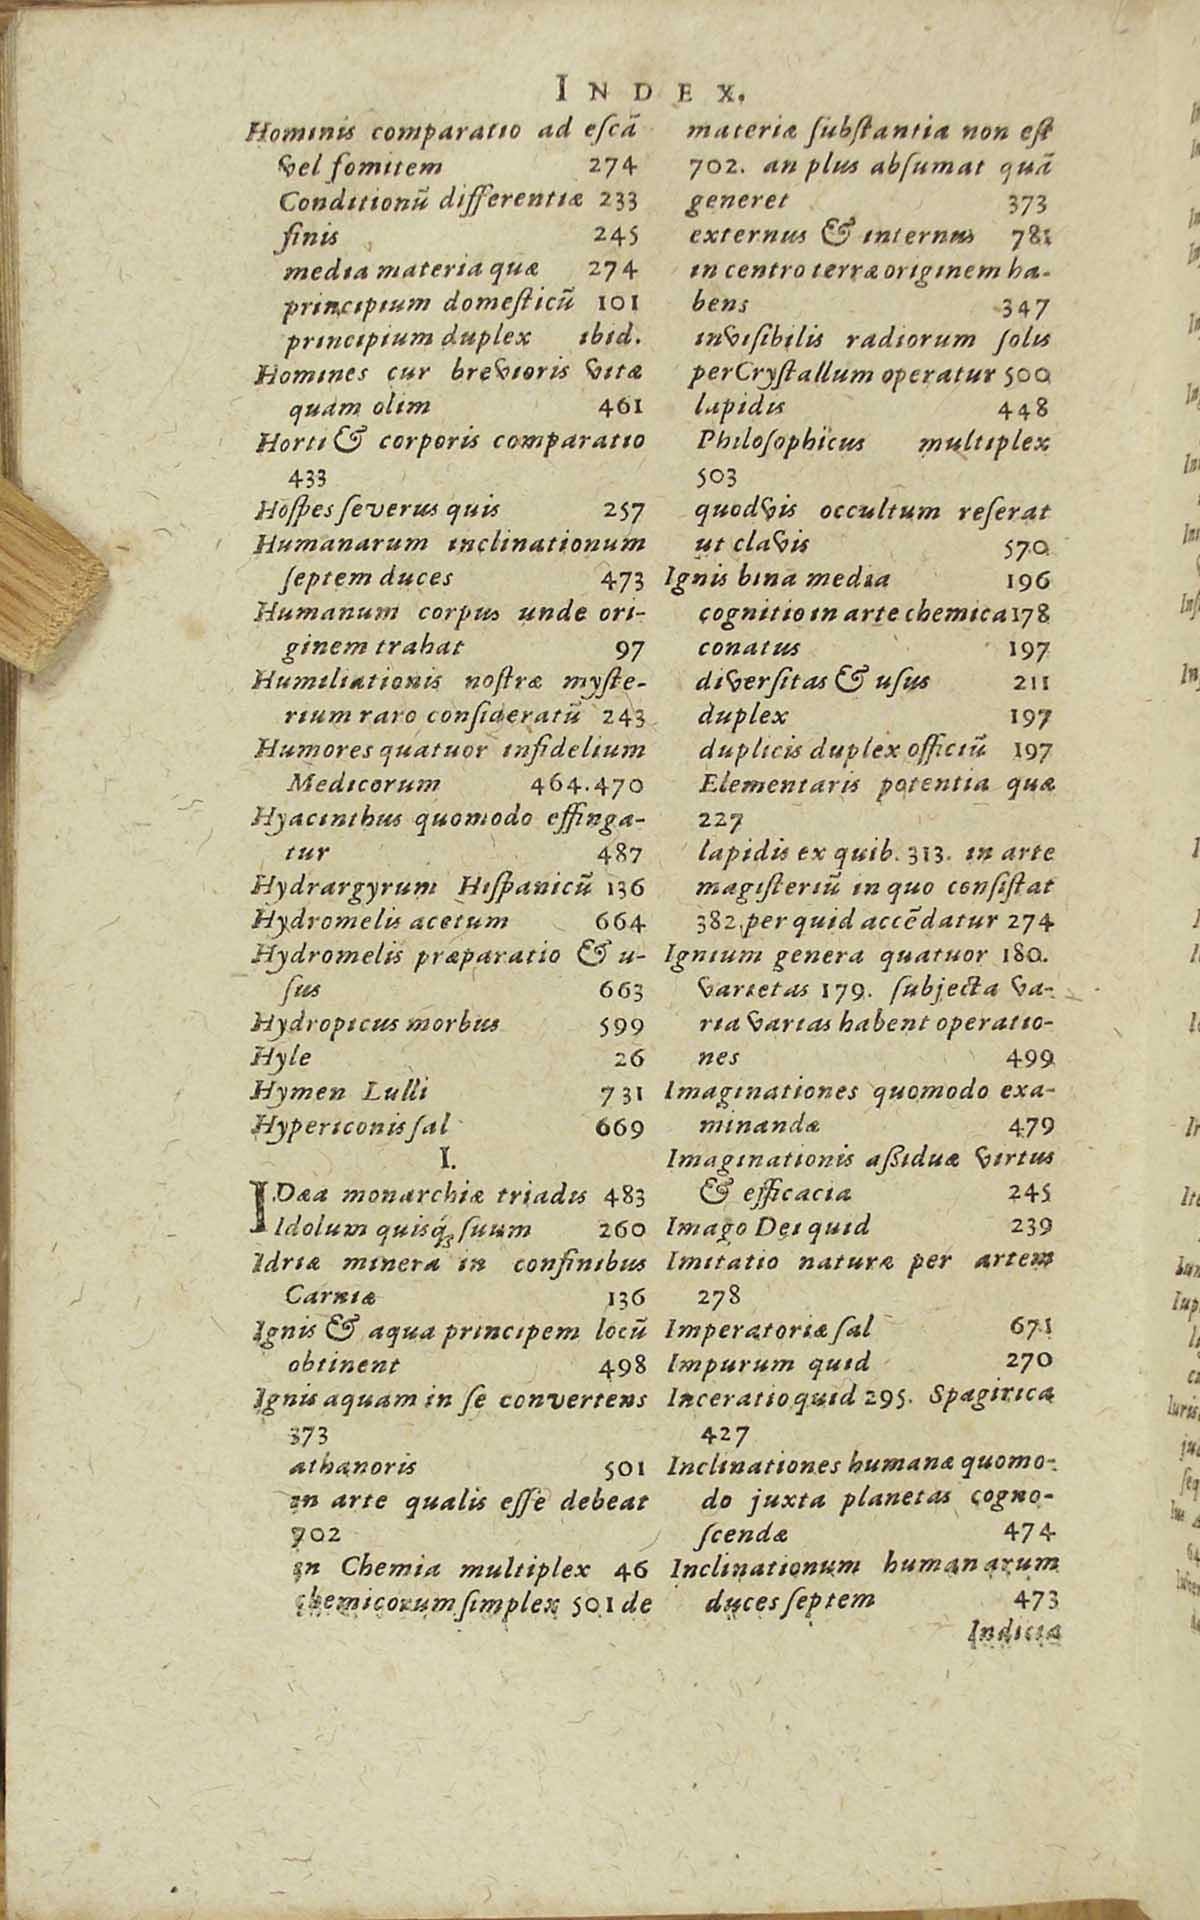 INDEX.
Hominis comparatio ad escã
vel fomitem 274
Conditionũ differentiæ 233
finis 245
media materia quæ 274
principium domesticũ 101
principium duplex ibid.
Homines cur brevioris vitæ
quàm olim 461
Horti & corporis comparatio
433
Hospes severus quis 257
Humanarum inclinationum
septem duces 473
Humanum corpus unde ori-
ginem trahat 97
Humiliationis nostræ myste-
rium raro consideratũ 243
Humores quatuor infidelium
Medicorum 464.470
Hyacinthus quomodo effinga-
tur 487
Hydrargyrum Hispanicũ 136
Hydromelis acetum 664
Hydromelis præparatio & u-
sus 663
Hydropicus morbus 599
Hyle 26
Hymen Lulli 731
Hypericonis sal 669
I.
IDæa monarchiæ triadis 483
Idolum quisq́; suum 260
Idriæ minera in confinibus
Carniæ 136
Ignis & aqua principem locũ
obtinent 498
Ignis aquam in se convertens
373
athanoris 501
in arte qualis esse debeat
702
in Chemia multiplex 46
chemicorum simplex 501 de
materiæ substantia non est
702. an plus absumat quã
generet 373
externus & internus 781
in centro terræ originem ha-
bens 347
invisibilis radiorum solis
per Crystallum operatur 500
lapidis 448
Philosophicus multiplex
503
quodvis occultum reserat
ut clavis 570
Ignis bina media 196
cognitio in arte chemica 178
conatus 197
diversitas & usus 211
duplex 197
duplicis duplex officiũ 197
Elementaris potentia quæ
227
lapidis ex quib. 313. in arte
magisteriũ in quo consistat
382. per quid accẽdatur 274
Ignium genera quatuor 180.
varietas 179. subjecta va-
ria varias habent operatio-
nes 499
Imaginationes quomodo exa-
minandæ 479
Imaginationis assiduæ virtus
& efficacia 245
Imago Dei quid 239
Imitatio naturæ per artem
278
Imperatoriæ sal 671
Impurum quid 270
Inceratio quid 295. Spagirica
427
Inclinationes humanæ quomo-
do juxta planetas cogno-
scendæ 474
Inclinationum humanarum
duces septem 473
Indicia